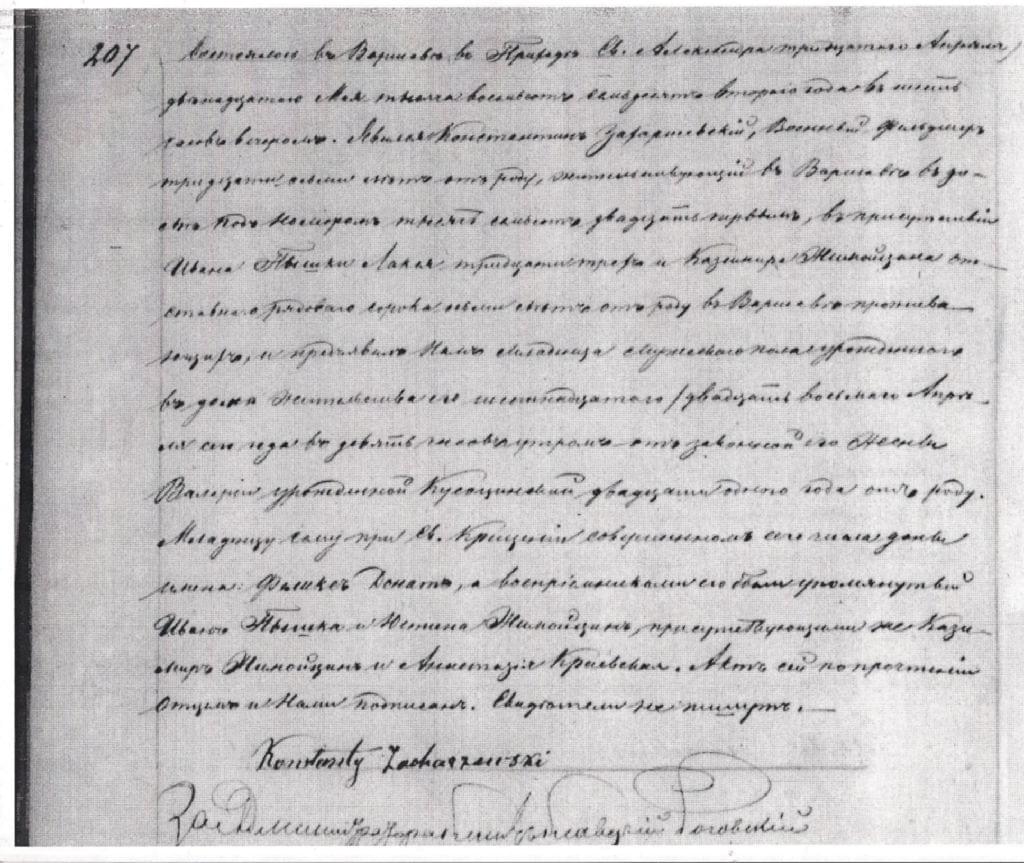 207 Состоялось въ Варшавѣ въ Приходѣ Св. Александра тридцатаго Апрѣля /
двѣнадцатаго Мая тысяча восемьсотъ семьдесятъ втораго года въ шесть
часовъ вечеромъ. Явился Константинъ Захаржевскій, Военный Фельдшеръ
тридцати семи лѣтъ отъ роду, жительствующій въ Варшавѣ въ до-
мѣ подъ номеромъ тысяча семьсотъ двадцать первымъ, въ присутствіи
Ивана Пышки Лакея тридцати трехъ и Казимира от-
ставнаго рядоваго сорока семи лѣтъ отъ роду въ Варшавѣ прожива-
ющихъ, и предъявилъ Намъ Младенца мужескаго пола урожденнаго
въ домѣ жительства его шестнадцатаго / двадцать восьмаго Апрѣ-
ля сего года въ девять часовъ утромъ отъ законной его Жены
Валеріи урожденной двадцати одного года отъ роду.
Младенцу сему при Св. Крещеніи совершенномъ сего числа даны
имена Феликсъ Донатъ, а воспріемниками его были упомянутый
Иванъ Пышка и Юстина присутствующими же Кази-
миръ и Анастазія Краевская. Актъ сей по прочтеніи
Отцемъ и Нами подписанъ. Свидѣтели не пишутъ. —
Konstanty Zacharzewski
За Роговскій